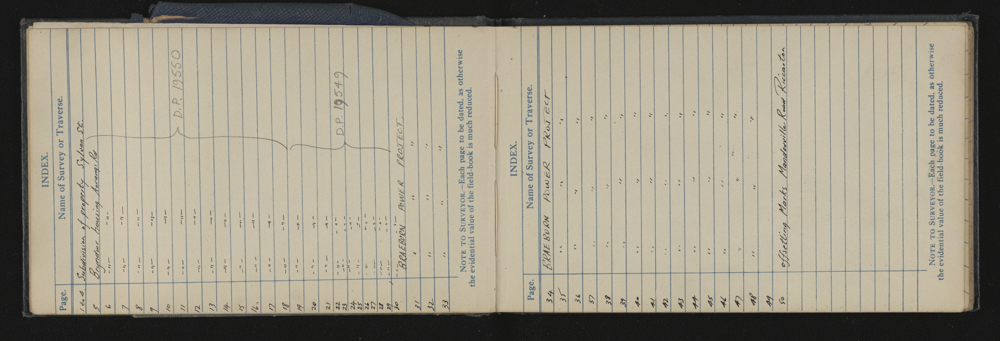 INDEX.
Page. Name of Survey or Traverse.
1 to 4 Subdivision of property Sylvan St.
5 housing Survey Rd
6 " "
7 " "
8 " "
9 " "
10 " "
11 " "
12 " "
13 " "
14 " "
15 " "
16 " "
17 " "
18 " "
19 " "
20 " "
21 " "
22 " "
23 " "
24 " "
25 " "
26 " "
27 " "
28 " "
29 " "
30 BRAEBURN POWER PROJECT
31 " " "
32 " " "
33 " " "
D.P. 19550
D.P. 19549
NOTE TO SURVEYOR.—Each page to be dated, as otherwise
the evidential value of the field-book is much reduced.
INDEX.
Page. Name of Survey or Traverse.
34 BRAEBURN POWER PROJECT
35 " " "
36 " " "
37 " " "
38 " " "
39 " " "
40 " " "
41 " " "
42 " " "
43 " " "
44 " " "
45 " " "
46 " " "
47 " " "
48 " " "
49
50 offsetting Marks Mandeville Road Riccarton
NOTE TO SURVEYOR.—Each page to be dated, as otherwise
the evidential value of the field-book is much reduced.